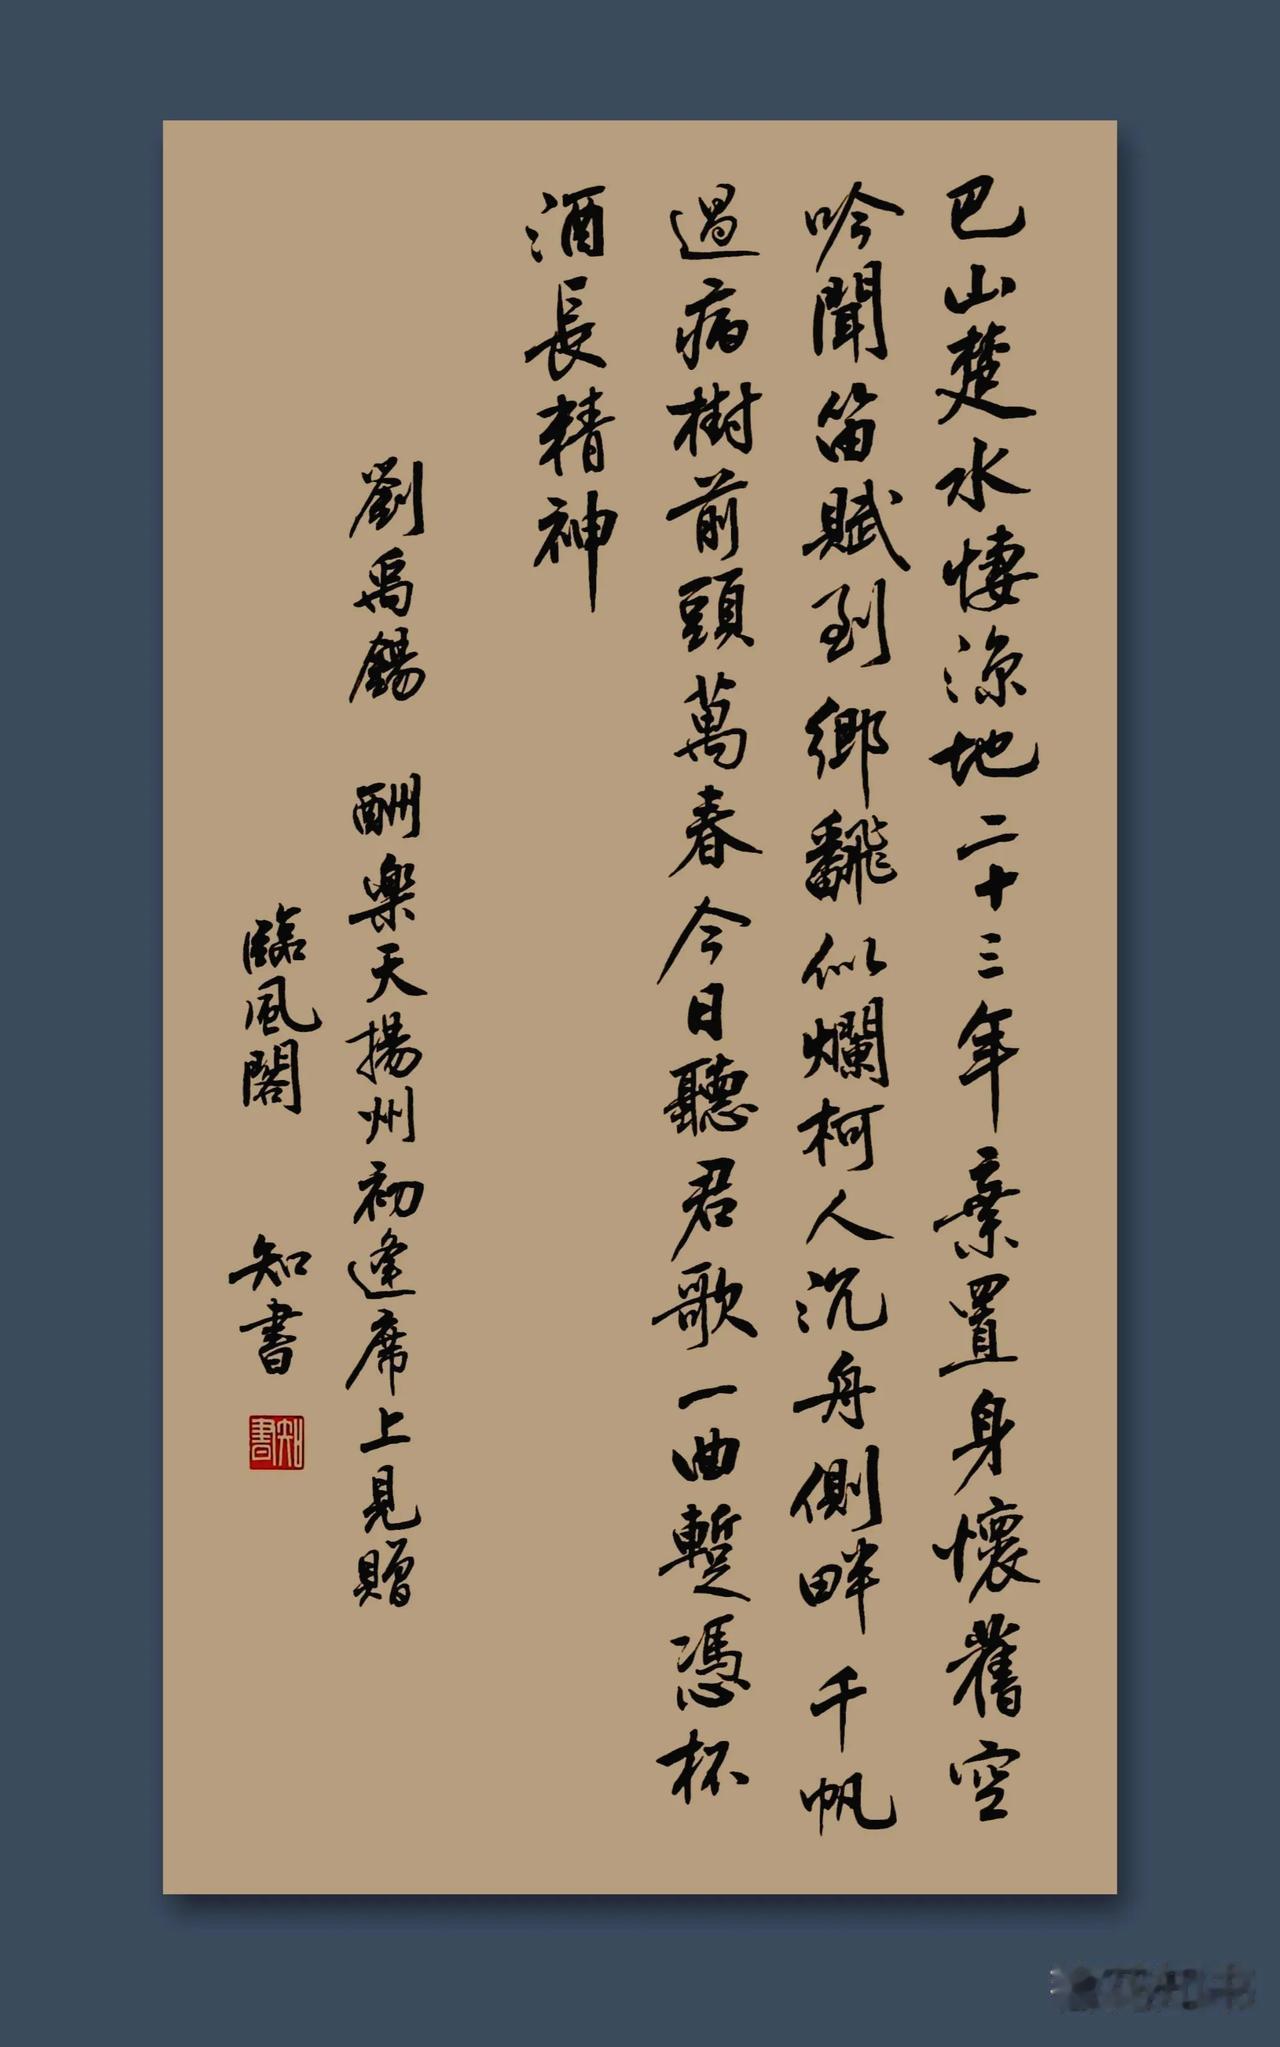 巴山楚水悽涼地二十三年棄置身懷舊空
吟聞笛賦到鄉飜似爛柯人沉舟側畔千帆
過病樹前頭萬春今日聽君歌一曲蹔憑杯
酒長精神
劉禹錫 酬樂天揚州初逢席上見贈
臨風閣 知書
知書